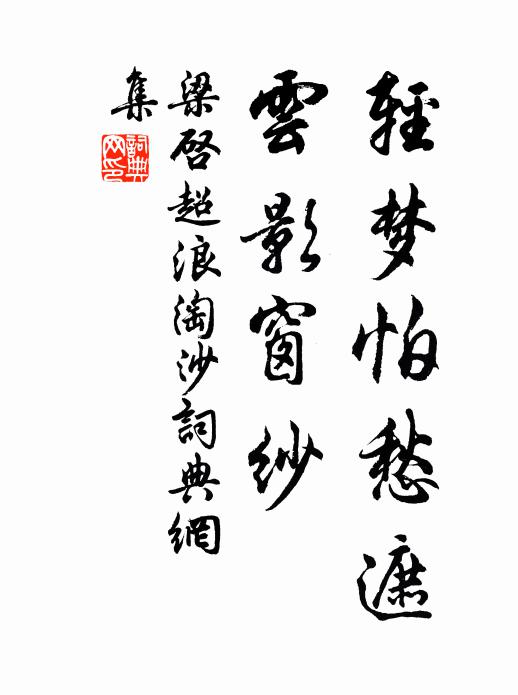 輕梦怕愁遮
雲影窗紗
梁啓超浪淘沙詞典網
集
詞典网印